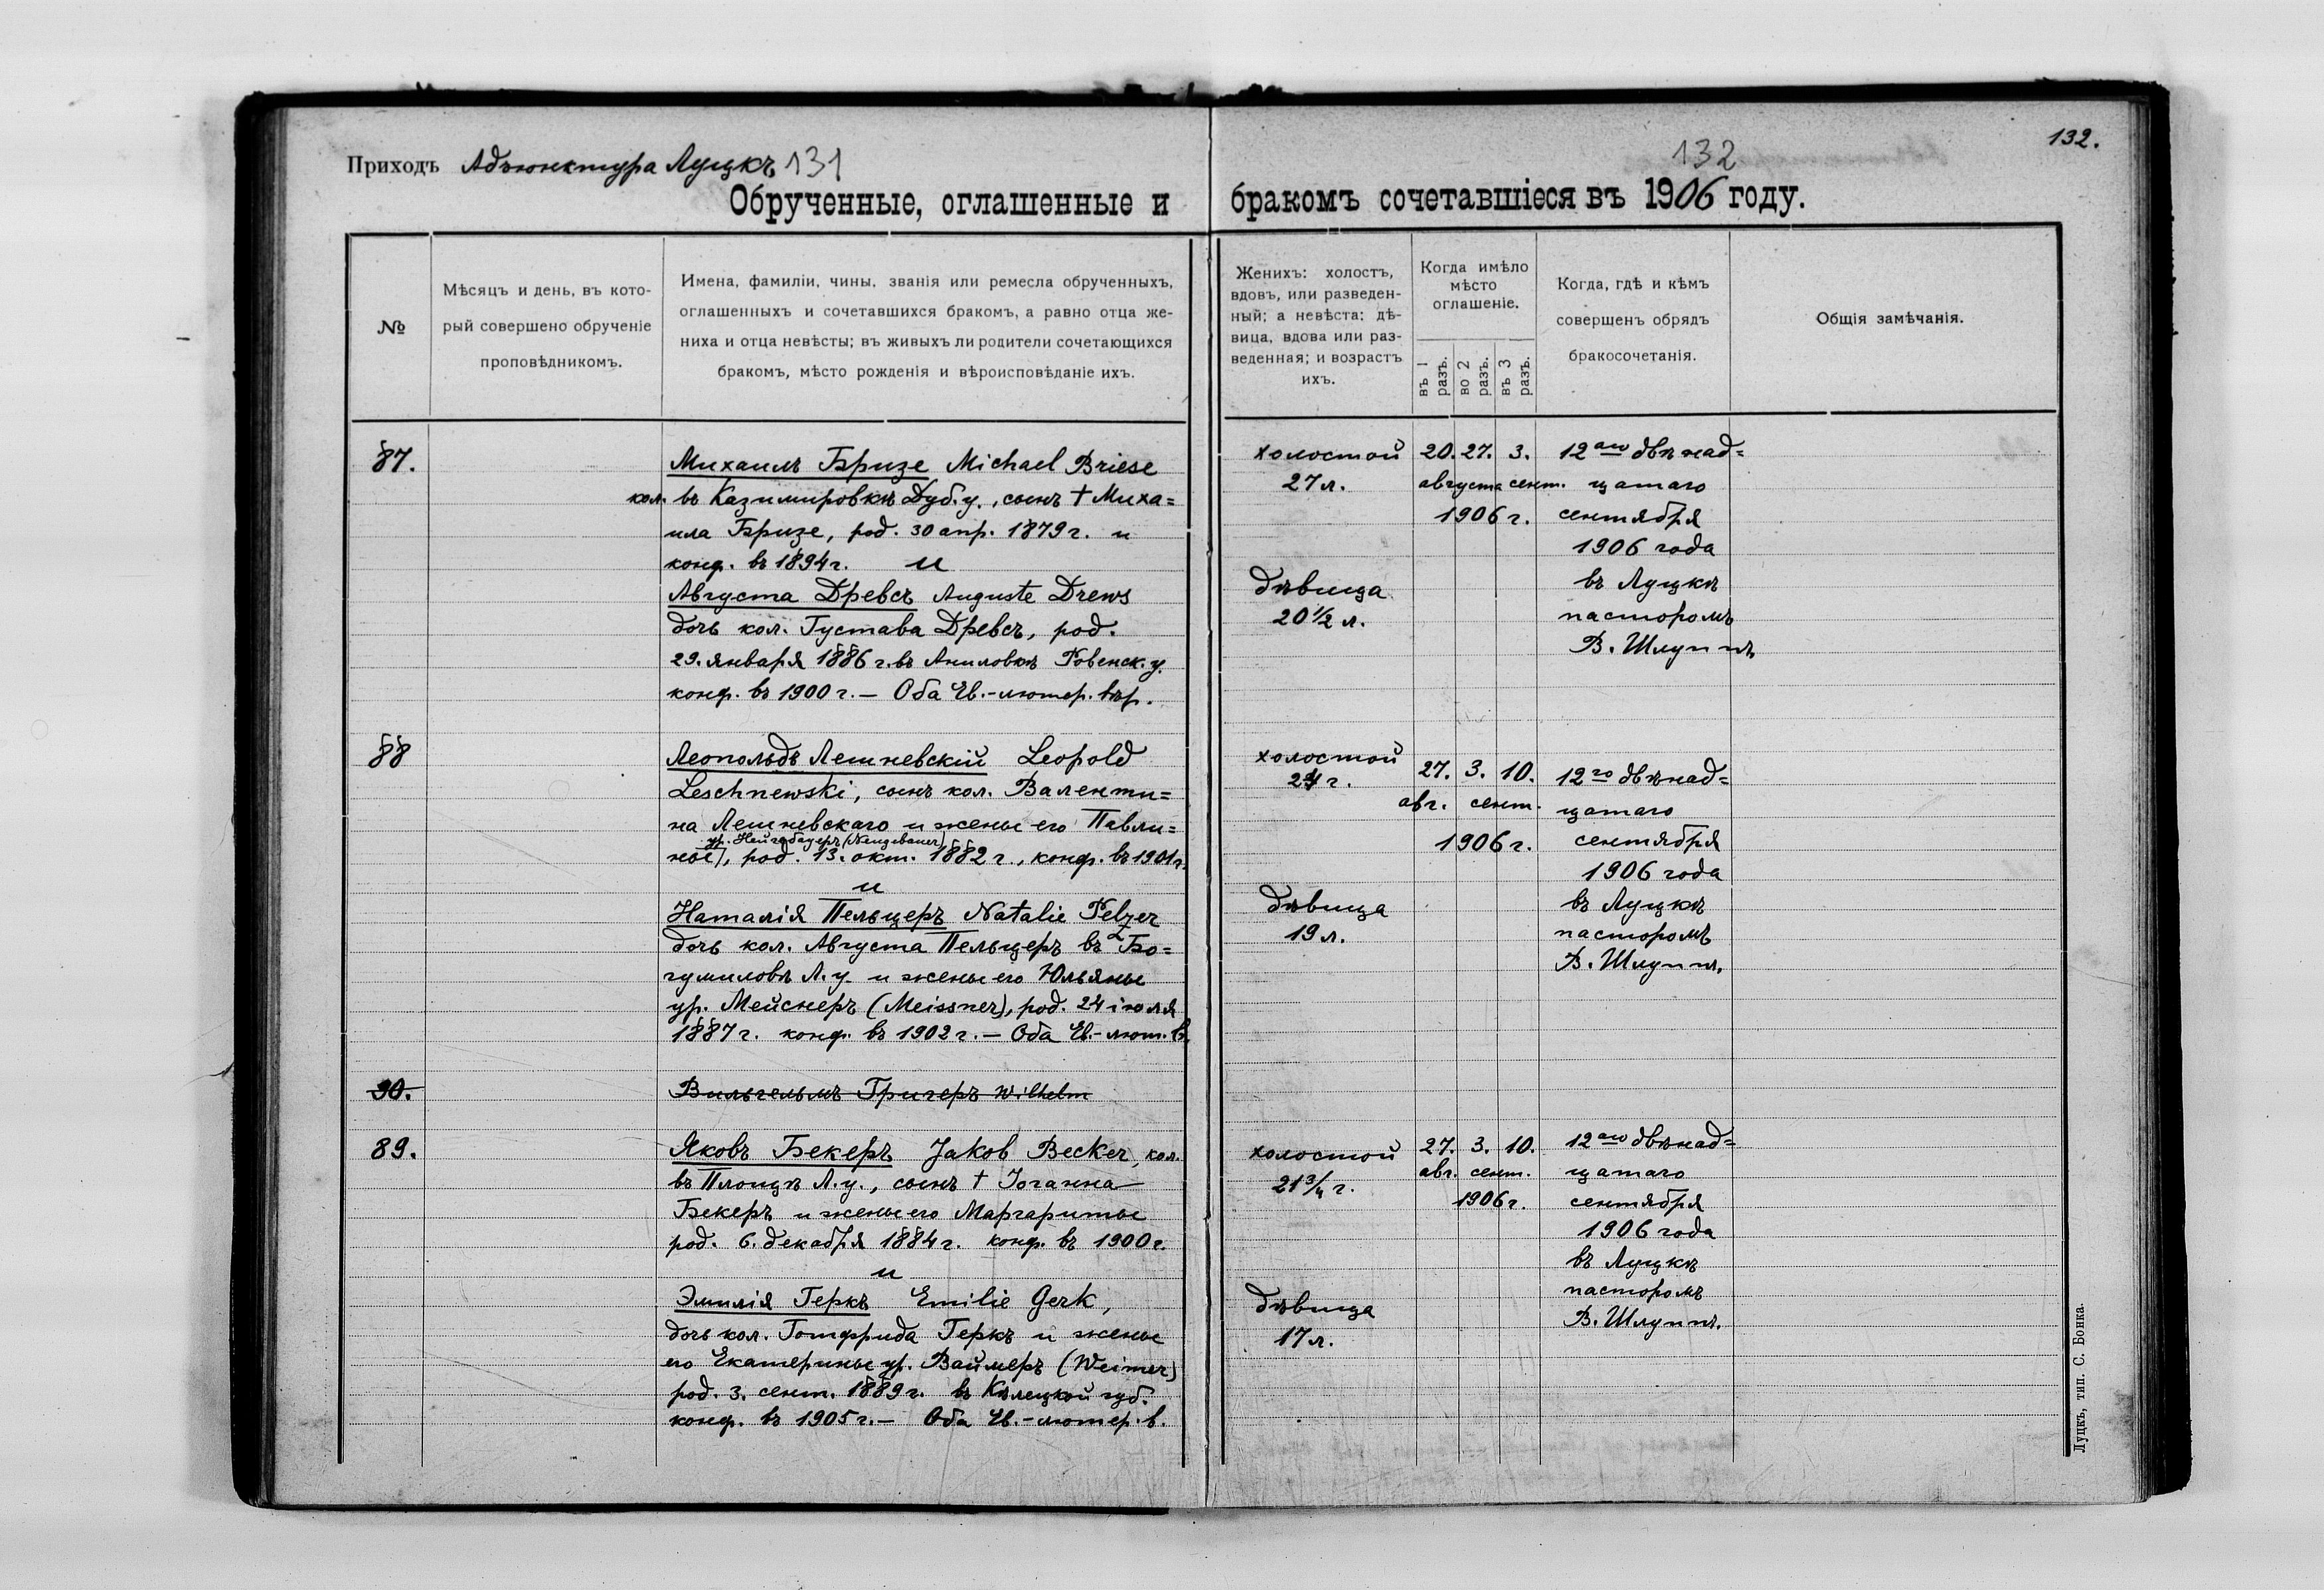 Приходъ Адъюнктура Луцкъ 131
132
132.
Обрученные, оглашенные и бракомъ сочетавшіеся въ 1906 году.
№
Мѣсяцъ и день, въ кото-
рый совершено обрученіе
проповѣдникомъ.
Имена, фамиліи, чины, званія или ремесла обрученныхъ,
оглашенныхъ и сочетавшихся бракомъ, а равно отца же-
ниха и отца невѣсты; въ живыхъ ли родители сочетающихся
бракомъ, мѣсто рожденія и вѣроисповѣданіе ихъ.
Женихъ: холостъ,
вдовъ, или разведен-
ный; а невѣста: дѣ-
вица, вдова или раз-
веденная; и возрастъ
ихъ.
Когда имѣло
мѣсто
оглашеніе.
въ 1 разъ.
во 2 разъ.
въ 3 разъ.
Когда, гдѣ и кѣмъ
совершенъ обрядъ
бракосочетанія.
Общія замѣчанія.
87.
Михаилъ Бризе Michael Briese
кол. въ Казимировкѣ Дуб. у., сынъ † Миха=
ила Бризе, род. 30 апр. 1879 г. и
конф. въ 1894 г. и
Августа Древсъ Auguste Drews
дочь кол. Густава Древсъ, род.
29. января 1886 г. въ Аниловкѣ Ровенск. у.
конф. въ 1900 г. — Оба Ев.-лютер. вѣр.
холостой
27 л.
дѣвица
20 1/2 л.
20. 27. 3.
августа сент.
1906 г.
12ого двѣнад=
цатаго
сентября
1906 года
въ Луцкѣ
пасторомъ
В. Шлуппъ
88
Леопольдъ Лешневскій Leopold
Leschnewski, сынъ кол. Валенти=
на Лешневскаго и жены его Павли=
ур. Нейгебауеръ (Neugebauer)
ной, род. 13. окт. 1882 г., конф. въ 1901 г.
и
Наталія Пельцеръ Natalie Pelzer
дочь кол. Августа Пельцеръ въ Бо=
гумиловѣ Л. у. и жены его Юльяны
ур. Мейснеръ (Meissner), род. 24 іюля
1887 г. конф. въ 1902 г. — Оба Ев.-лют. в.
холостой
24 г.
дѣвица
19 л.
27. 3. 10.
авг. сент.
1906 г.
12го двѣнад=
цатаго
сентября
1906 года
въ Луцкѣ
пасторомъ
В. Шлуппъ.
90.
Вильгельмъ Григеръ Wilhelm
89.
Яковъ Бекеръ Jakob Becker, кол.
въ Площѣ Л. у., сынъ † Іоганна
Бекеръ и жены его Маргариты
род. 6. декабря 1884 г. конф. въ 1900 г.
и
Эмилія Геркъ Emilie Gerk,
дочь кол. Готфрида Геркъ и жены
его Екатерины ур. Ваймеръ (Weimer)
род. 3. сент. 1889 г. въ Кѣлецкой губ.
конф. въ 1905 г. — Оба Ев.-лютер. в.
холостой
21 3/4 г.
дѣвица
17 л.
27. 3. 10.
авг. сент.
1906 г.
12ого двѣнад=
цатаго
сентября
1906 года
въ Луцкѣ
пасторомъ
В. Шлуппъ.
Луцкъ, тип. С. Бонка.